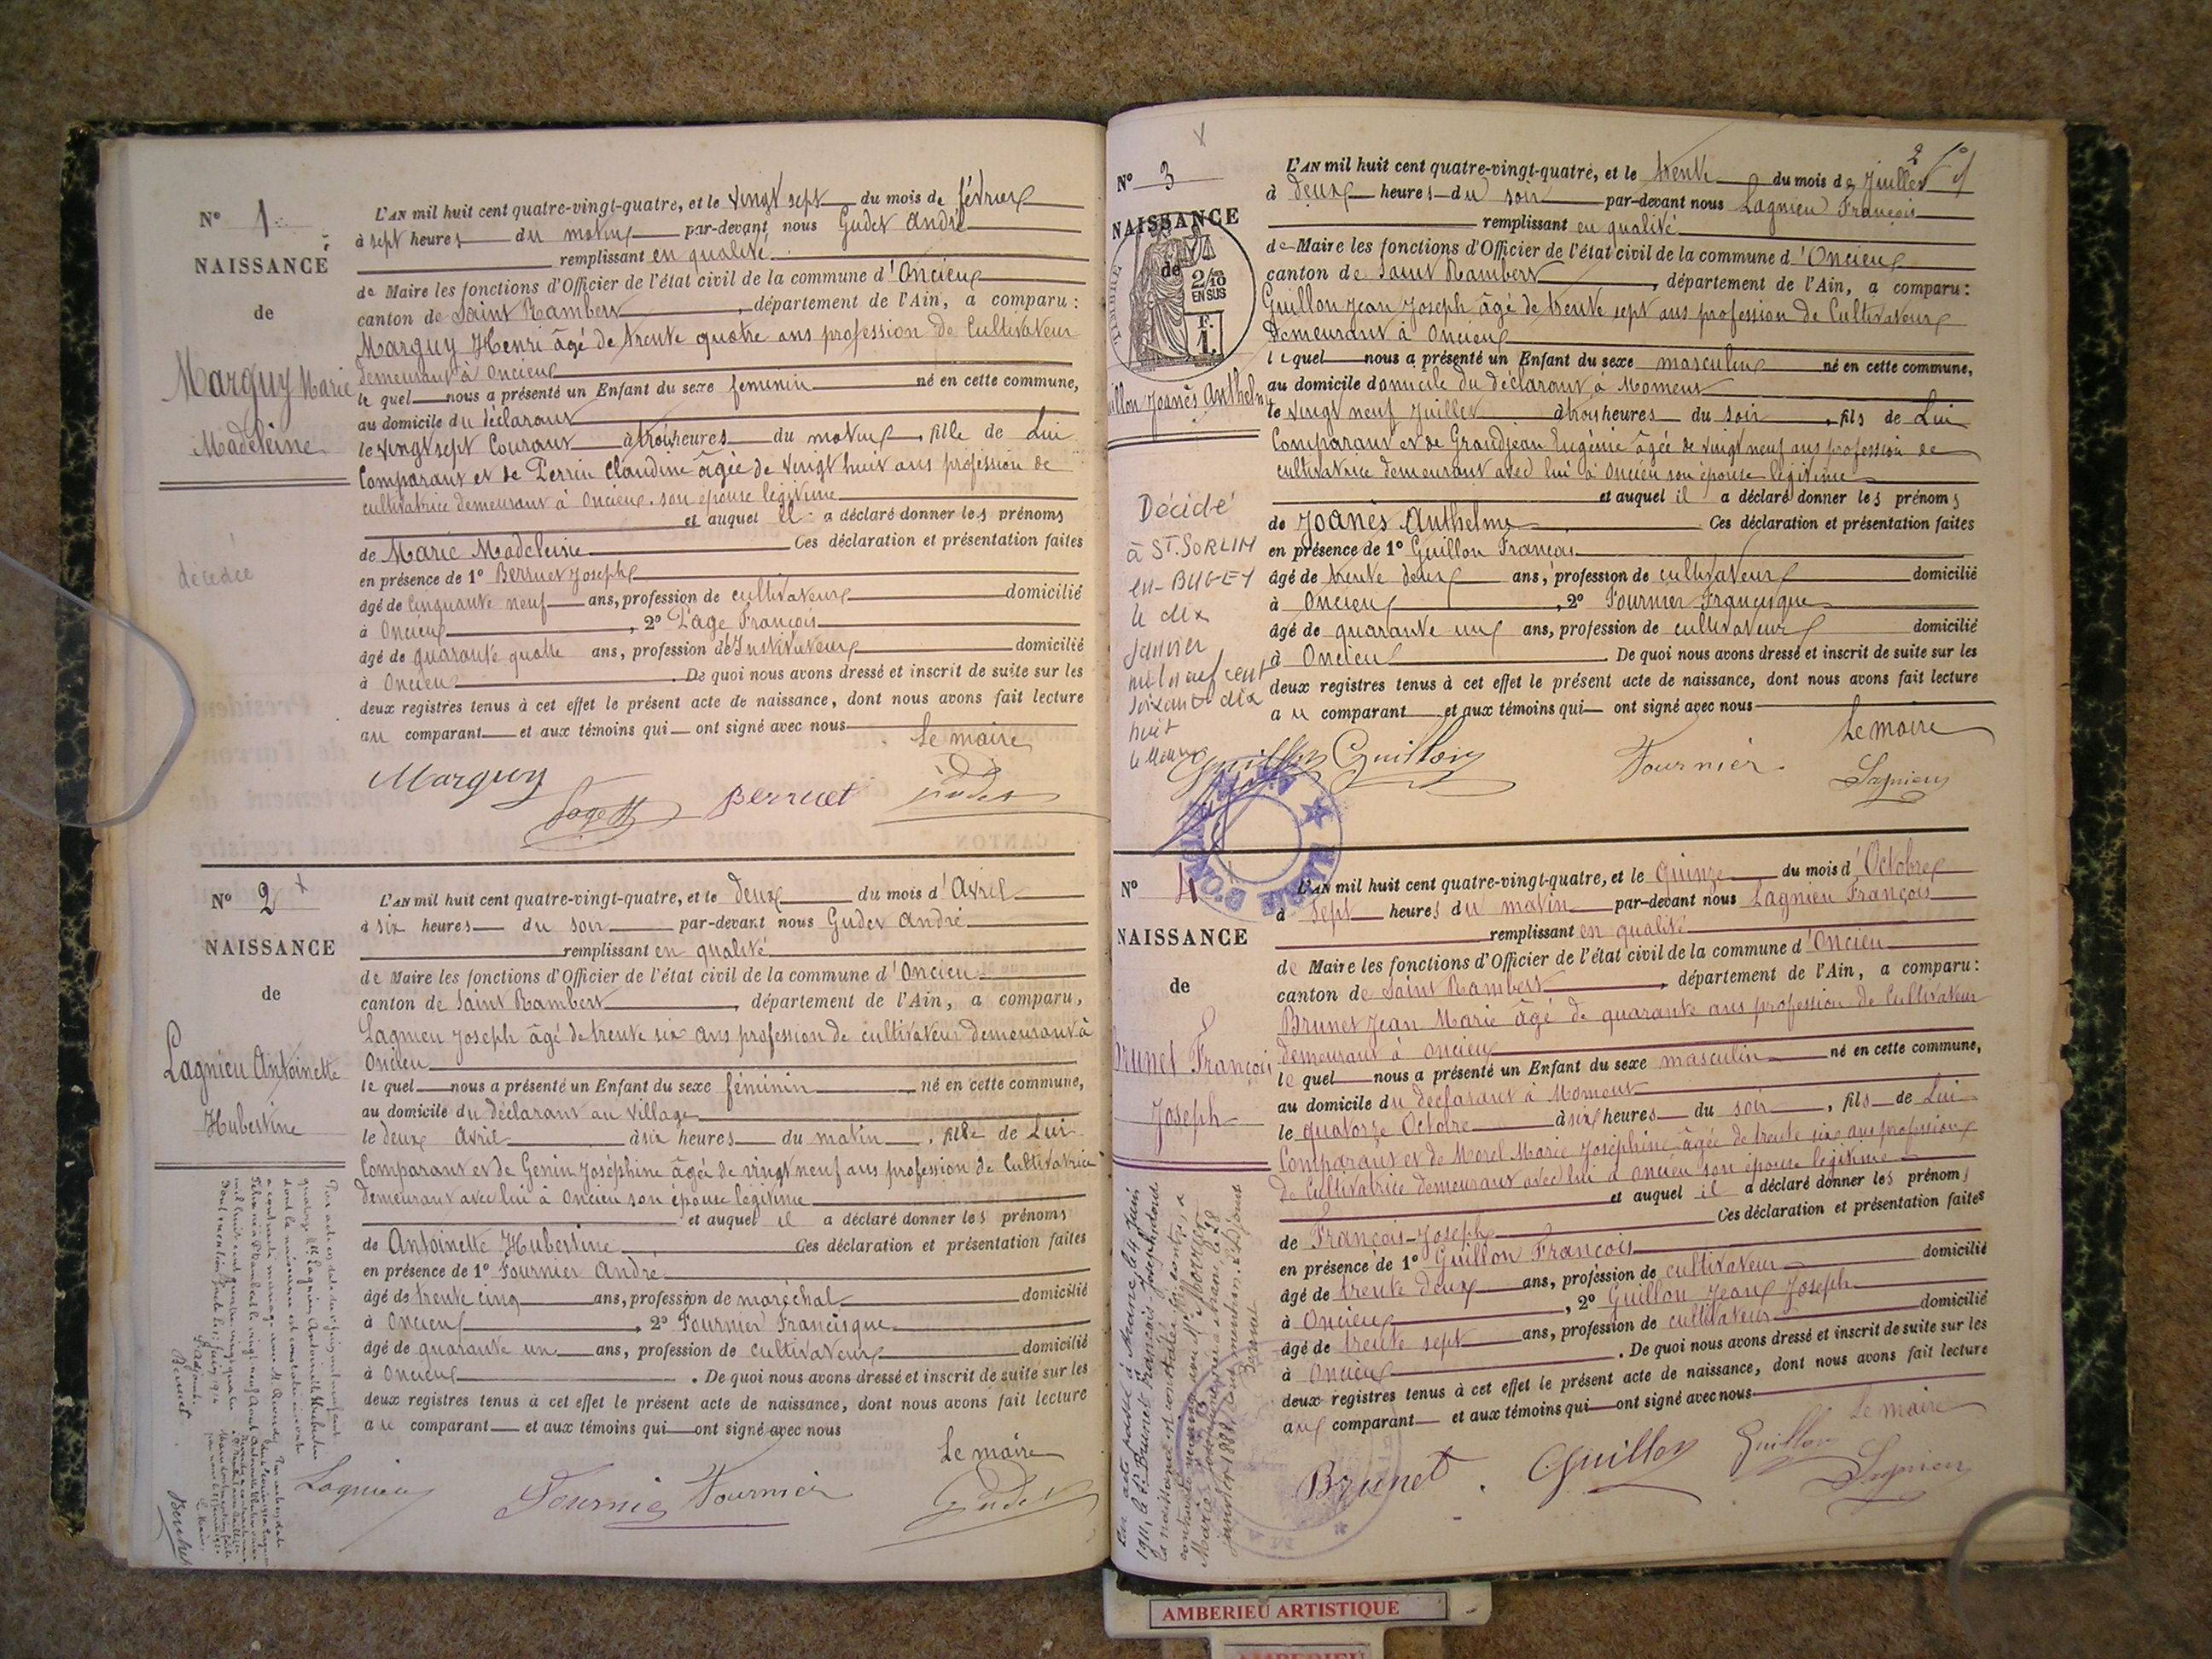 N° 1
NAISSANCE
de
Marguy Marie
Madeleine
décédée
L'AN mil huit cent quatre-vingt-quatre, et le vingt sept du mois de février
à sept heures du matin par-devant nous Gudet André
remplissant en qualité
de Maire les fonctions d'Officier de l'état civil de la commune d'Oncieu
canton de Saint Rambert, département de l'Ain, a comparu :
Marguy Henri âgé de trente quatre ans profession de Cultivateur
demeurant à Oncieu
le quel nous a présenté un Enfant du sexe feminin né en cette commune,
au domicile du déclarant
le vingt sept Courant à trois heures du matin, fille de Lui
Comparant et de Perrin Claudine âgée de vingt huit ans profession de
cultivatrice demeurant à Oncieu son épouse légitime
et auquel il a déclaré donner les prénoms
de Marie Madeleine Ces déclaration et présentation faites
en présence de 1° Berruet Joseph
âgé de cinquante neuf ans, profession de cultivateur domicilié
à Oncieu, 2° Page François
âgé de quarante quatre ans, profession d'Instituteur domicilié
à Oncieu. De quoi nous avons dressé et inscrit de suite sur les
deux registres tenus à cet effet le présent acte de naissance, dont nous avons fait lecture
au comparant et aux témoins qui ont signé avec nous
Le maire
Marguy Page Berruet Gudet
N° 2
NAISSANCE
de
Lagnieu Antoinette
Hubertine
L'AN mil huit cent quatre-vingt-quatre, et le deux du mois d'Avril
à six heures du soir par-devant nous Gudet André
remplissant en qualité
de Maire les fonctions d'Officier de l'état civil de la commune d'Oncieu
canton de Saint Rambert, département de l'Ain, a comparu,
Lagnieu Joseph âgé de trente six ans profession de cultivateur demeurant à
Oncieu
le quel nous a présenté un Enfant du sexe féminin né en cette commune,
au domicile du déclarant au village
le deux Avril à six heures du matin, fille de Lui
Comparant et de Genin Joséphine âgée de vingt neuf ans profession de Cultivatrice
demeurant avec lui à Oncieu son épouse légitime
et auquel il a déclaré donner les prénoms
de Antoinette Hubertine Ces déclaration et présentation faites
en présence de 1° Fournier André
âgé de trente cinq ans, profession de maréchal domicilié
à Oncieu, 2° Fournier Francisque
âgé de quarante un ans, profession de cultivateur domicilié
à Oncieu. De quoi nous avons dressé et inscrit de suite sur les
deux registres tenus à cet effet le présent acte de naissance, dont nous avons fait lecture
au comparant et aux témoins qui ont signé avec nous
Le maire
Lagnieu Fournier Fournier Gudet
2
N° 3
NAISSANCE
de
2/10
EN SUS
F.
1.
Guillon Joanès Anthelme
Décédé
à ST. SORLIN
en-BUGEY
le dix
janvier
mil neuf cent
soixante dix
huit
le Maire
L'AN mil huit cent quatre-vingt-quatre, et le trente du mois de Juillet
à deux heures du soir par-devant nous Lagnieu François
remplissant en qualité
de Maire les fonctions d'Officier de l'état civil de la commune d'Oncieu
canton de Saint Rambert, département de l'Ain, a comparu :
Guillon Jean Joseph âgé de trente sept ans profession de Cultivateur
demeurant à Oncieu
le quel nous a présenté un Enfant du sexe masculin né en cette commune,
au domicile domicile du déclarant à Moment
le vingt neuf Juillet à trois heures du soir, fils de Lui
Comparant et de Grandjean Eugénie âgée de vingt neuf ans profession de
cultivatrice demeurant avec lui à Oncieu son épouse légitime
et auquel il a déclaré donner les prénoms
de Joanès Anthelme Ces déclaration et présentation faites
en présence de 1° Guillon François
âgé de trente deux ans, profession de cultivateur domicilié
à Oncieu, 2° Fournier Francisque
âgé de quarante un ans, profession de cultivateur domicilié
à Oncieu. De quoi nous avons dressé et inscrit de suite sur les
deux registres tenus à cet effet le présent acte de naissance, dont nous avons fait lecture
au comparant et aux témoins qui ont signé avec nous
Le maire
Guillon Guillon Fournier Lagnieu
N° 4
NAISSANCE
de
Brunet François
Joseph
L'AN mil huit cent quatre-vingt-quatre, et le quinze du mois d'Octobre
à sept heures du matin par-devant nous Lagnieu François
remplissant en qualité
de Maire les fonctions d'Officier de l'état civil de la commune d'Oncieu
canton de Saint Rambert, département de l'Ain, a comparu :
Brunet Jean Marie âgé de quarante ans profession de Cultivateur
demeurant à Oncieu
le quel nous a présenté un Enfant du sexe masculin né en cette commune,
au domicile du déclarant à Moment
le quatorze Octobre à six heures du soir, fils de Lui
Comparant et de Morel Marie Joséphine âgée de trente six ans profession
de Cultivatrice demeurant avec lui à Oncieu son épouse légitime
et auquel il a déclaré donner les prénoms
de François-Joseph Ces déclaration et présentation faites
en présence de 1° Guillon François
âgé de trente deux ans, profession de cultivateur domicilié
à Oncieu, 2° Guillon Jean Joseph
âgé de trente sept ans, profession de cultivateur domicilié
à Oncieu. De quoi nous avons dressé et inscrit de suite sur les
deux registres tenus à cet effet le présent acte de naissance, dont nous avons fait lecture
au comparant et aux témoins qui ont signé avec nous
Le maire
Brunet Guillon Guillon Lagnieu
AMBERIEU ARTISTIQUE
AMBERIEU